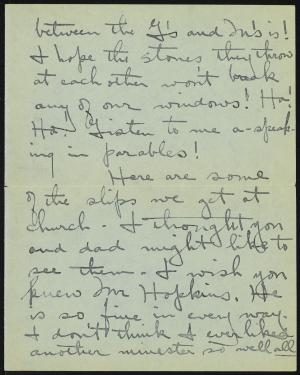 between the G's and M's is!
I hope the stones they throw
at each other won't break
any of our windows! Ha!
Ha! Listen to me a-speak-
ing in parables!
Here are some
of the slips we get at
church - I thought you
and dad might like to
see them - I wish you
knew Mr Hopkins. He
is so fine in every way.
I don't think I ever liked
another minister so well all